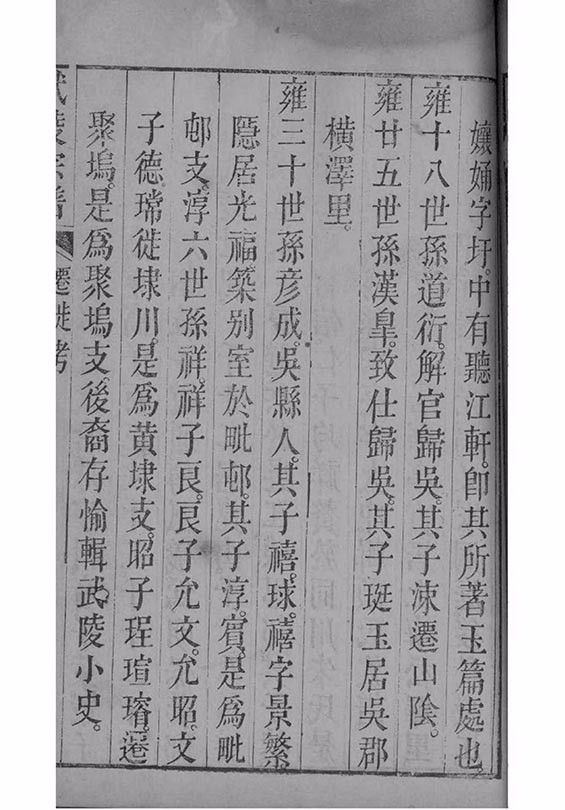 孃婳字圩。中有聽江軒。卽其所著玉篇處也。
雍十八世孫道衍。解官歸吳。其子洓。遷山陰。
雍廿五世孫漢皇。致仕歸吳。其子珽玉居吳郡
橫澤里。
雍三十世孫彥成。吳縣人。其子禧。球。禧字景繁。
隱居光福築別室於毗邨。其子淳。實。是爲毗
邨支。淳六世孫祥。祥子㫰。㫰子允文。允昭。文
子德。瑺徙埭川。是爲黃埭支。昭子珵瑄瑹。遷
聚塢。是爲聚塢支。後裔存愉輯武陵小史。
武陵宗譜
遷徙考